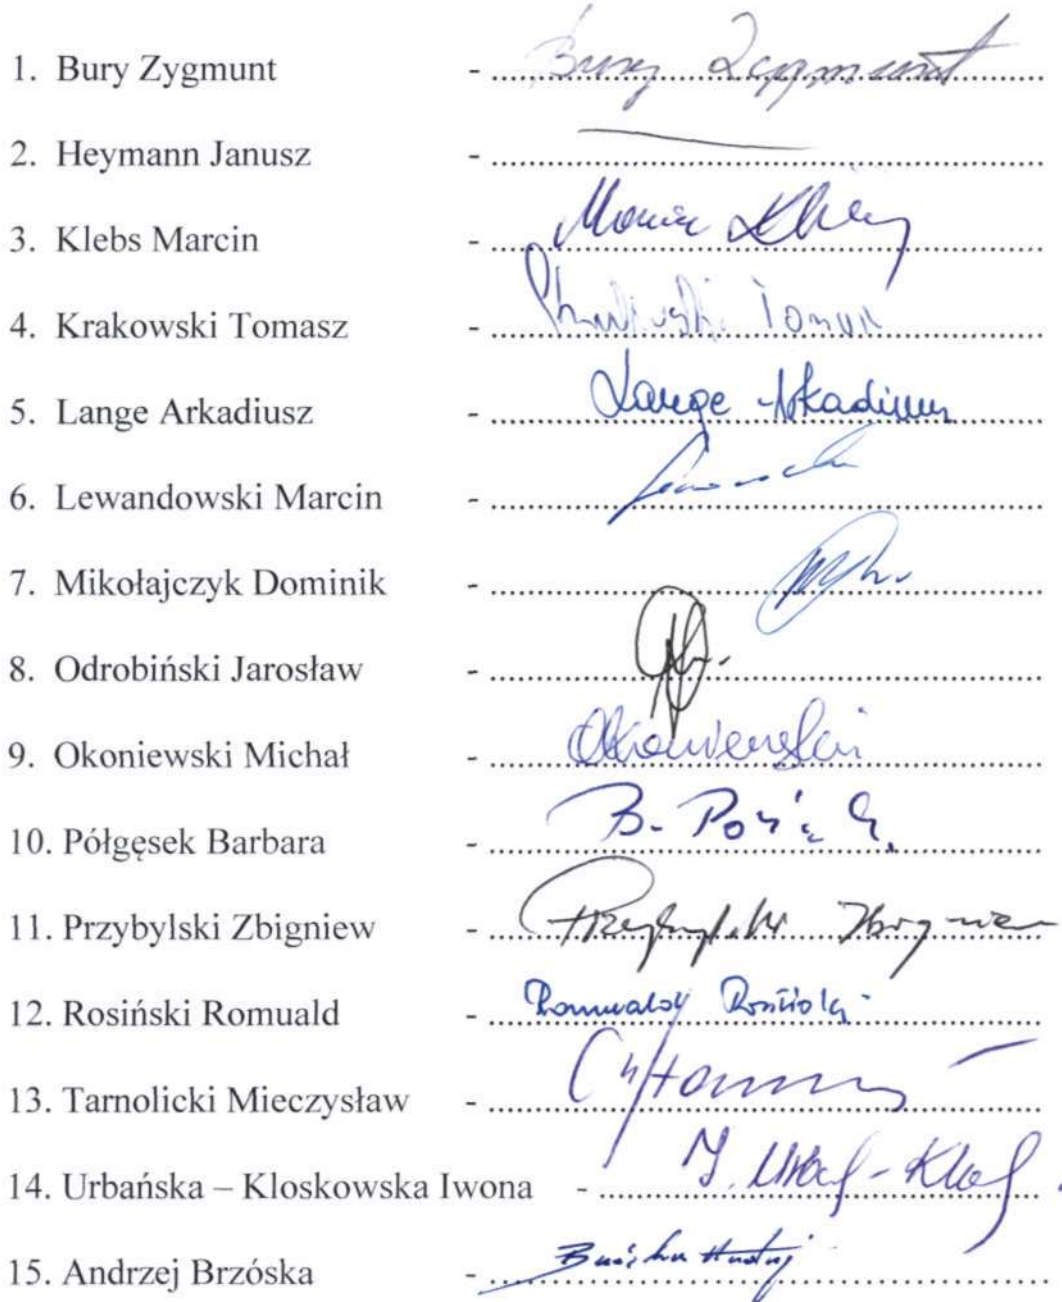 1. Bury Zygmunt - Bury Zygmunt
2. Heymann Janusz -
3. Klebs Marcin - Marcin
4. Krakowski Tomasz - Tomasz
5. Lange Arkadiusz - Lange Arkadiusz
6. Lewandowski Marcin -
7. Mikołajczyk Dominik -
8. Odrobiński Jarosław -
9. Okoniewski Michał - Okoniewski
10. Półgęsek Barbara - B.
11. Przybylski Zbigniew - Przybylski Zbigniew
12. Rosiński Romuald - Romuald Rosiński
13. Tarnolicki Mieczysław -
14. Urbańska – Kloskowska Iwona -
15. Andrzej Brzóska - Brzóska Andrzej